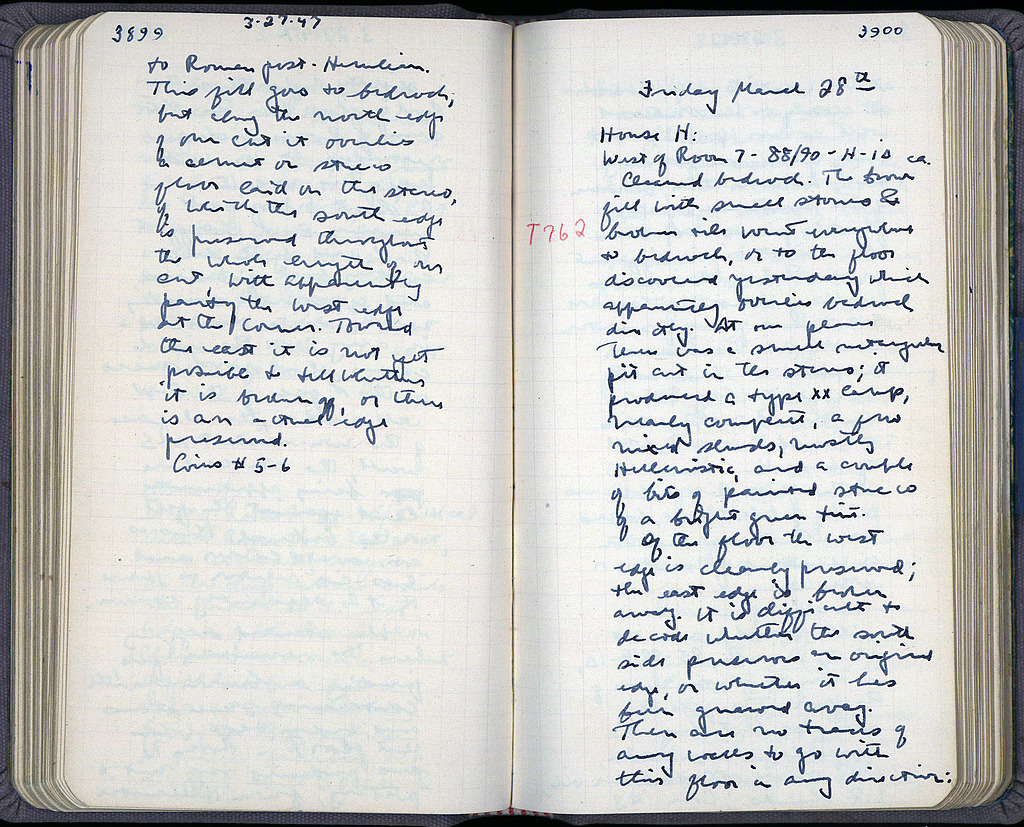 3899
3-27-47
to Roman post-Herulian.
This fill goes to bedrock,
but along the north edge
of our cut it overlies
a cement or stucco
floor laid on the stereo,
of which the south edge
is preserved throughout
the whole length of our
cut, with apparently
partly the west edge
at the corner. Toward
the east it is not yet
possible to tell whether
it is broken off, or there
is an actual edge
preserved.
Coins # 5-6
3900
Friday March 28th
House H:
West of Room 7 - 88/90 - H-10 ca.
Cleared bedrock. The brown
fill with small stones &
broken tile went everywhere
to bedrock, or to the floor
discovered yesterday which
apparently overlies bedrock
directly. At one place
there was a small rectangular
pit cut in the stereo; it
T762
produced a type XX lamp,
nearly complete, a few
mixed sherds, mostly
Hellenistic, and a couple
of bits of painted stucco
of a bright green tint.
Of the floor the west
edge is clearly preserved;
the east edge is broken
away. It is difficult to
decide whether the south
side preserves an original
edge, or whether it has
been gnawed away.
There are no traces of
any walls to go with
this floor in any direction: